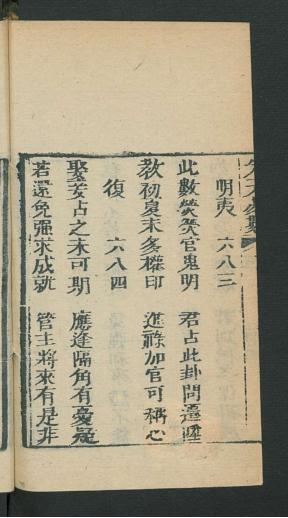 明夷　六八三
此數熒熒官鬼明　君占此卦問遷陞
教初夏未多權印　進祿加官可稱心
復　六八四
娶妻占之未可期　應逢隔角有憂疑
若還免強求成就　管主將來有是非